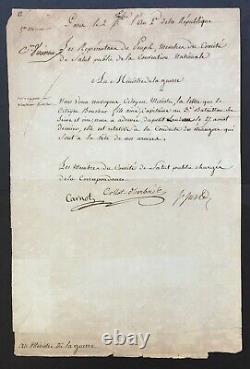 Paris le 2 7bre l'an 2e de la République
Les Représentans du Peuple, Membres du Comité
de Salut public de la Convention Nationale
Au Ministre de la guerre
Nous vous envoyons Citoyen Ministre, la lettre que le
Citoyen fils Capitaine au 3e Bataillon de
et nous a adressé depuis le 27 août
dernier, elle est relative à la Conduite des étrangers qui
sont à la tête de nos armées.
Les Membres du Comité de Salut public chargés
de la Correspondance
Carnot Collot d'herbois
Au Ministre de la guerre